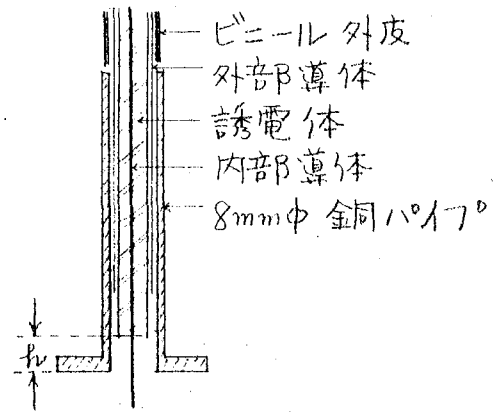 ビニール外皮
外部導体
誘電体
内部導体
8mmφ 銅パイプ
h